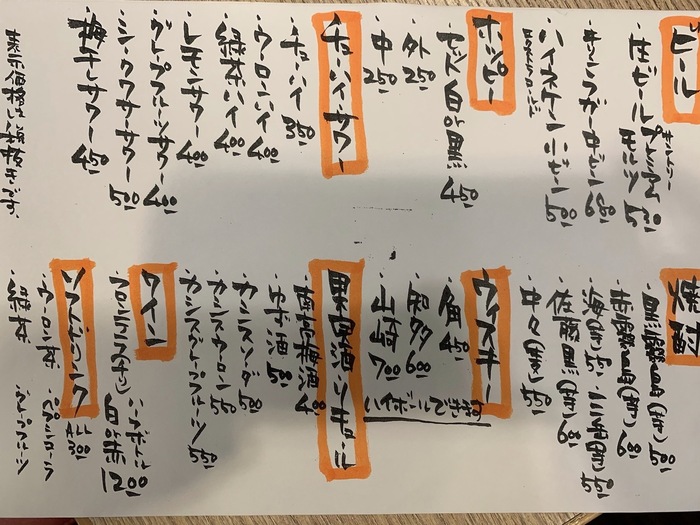 ビール
・生ビール プレミアムモルツ 550
・キリンラガー中ビン 600
・ハイネケン小ビン 500
ホッピー
・セット 白or黒 450
・外 250
・中 250
チューハイ・サワー
・チューハイ 350
・ウーロンハイ 400
・緑茶ハイ 400
・レモンサワー 400
・グレープフルーツサワー 400
・シークワサーサワー 500
・梅干しサワー 450
表示価格は税抜きです。
焼酎
・黒霧島(芋) 500
・赤霧島(芋) 600
・海(芋) 550 ・二階堂(麦) 550
・佐藤黒(芋) 600
・中々(麦) 550
ウィスキー
・角 450
・知多 600
・山崎 700
ハイボールできます
果実酒・リキュール
・梅酒 400
・ゆず酒 500
・カシスソーダ 500
・カシスウーロン 550
・カシスグレープフルーツ 550
ワイン
・フロンテラ(チリ) ハーフボトル
白or赤 1200
ソフトドリンク ALL 300
・ウーロン茶 ・ペプシコーラ
・緑茶 ・グレープフルーツ